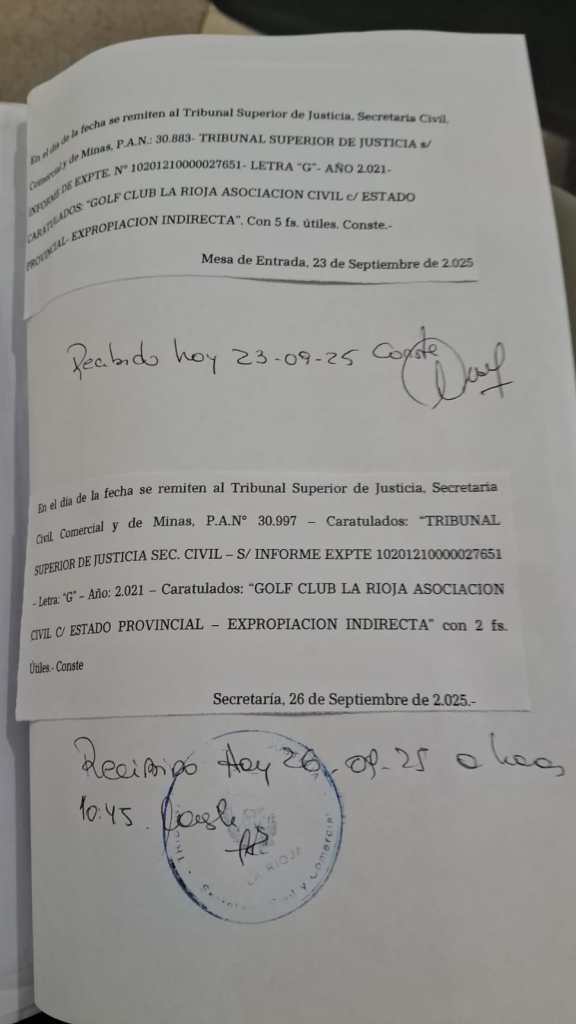 En el día de la fecha se remiten al Tribunal Superior de Justicia, Secretaria Civil,
Comercial y de Minas, P.A.N.: 30.883- TRIBUNAL SUPERIOR DE JUSTICIA s/
INFORME DE EXPTE. Nº 10201210000027651- LETRA "G"- AÑO 2.021-
CARATULADOS: "GOLF CLUB LA RIOJA ASOCIACION CIVIL c/ ESTADO
PROVINCIAL- EXPROPIACION INDIRECTA". Con 5 fs. útiles. Conste.-
Mesa de Entrada, 23 de Septiembre de 2.025
Recibido hoy 23-09-25 Conste
En el día de la fecha se remiten al Tribunal Superior de Justicia, Secretaria
Civil, Comercial y de Minas, P.A.Nº 30.997 – Caratulados: "TRIBUNAL
SUPERIOR DE JUSTICIA SEC. CIVIL – S/ INFORME EXPTE 10201210000027651
- Letra: "G" – Año: 2.021 – Caratulados: "GOLF CLUB LA RIOJA ASOCIACION
CIVIL C/ ESTADO PROVINCIAL – EXPROPIACION INDIRECTA" con 2 fs.
Útiles.- Conste
Secretaría, 26 de Septiembre de 2.025.-
Recibido Hoy 26-09-25 a horas
10:45.
LA RIOJA
Civil y Comercial